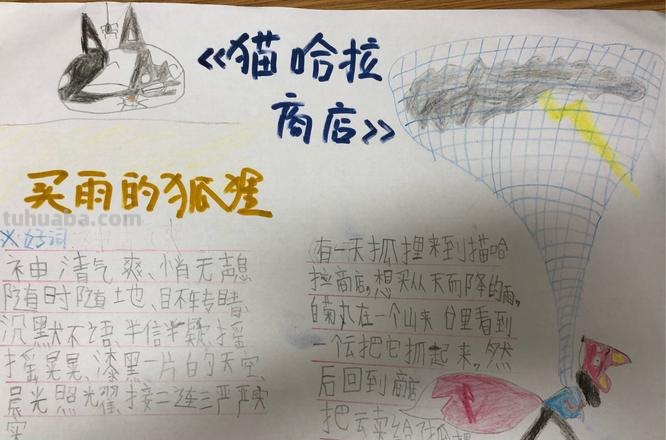 《猫哈拉
商店》
买雨的狐狸
tuhuaba.com
好词
神清气爽、悄无声息
随时随地、目不转睛
沉默不语、半信半疑、摇
摇晃晃、漆黑一片的天空
晨光照耀、接二连三严严实
实
有一天狐狸来到猫哈
拉商店,想买从天而降的雨,
白菊丸在一个山来台里看到
一个云把它抓起来,然
后回到商店
把云卖给狐狸